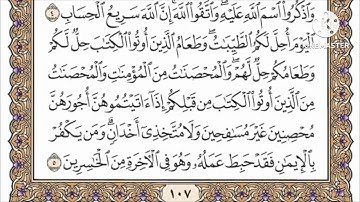 وَاذْكُرُوا اسْمَ اللَّهِ عَلَيْهِ وَاتَّقُوا اللَّهَ إِنَّ اللَّهَ سَرِيعُ الْحِسَابِ ٤
الْيَوْمَ أُحِلَّ لَكُمُ الطَّيِّبَاتُ وَطَعَامُ الَّذِينَ أُوتُوا الْكِتَابَ حِلٌّ لَكُمْ
وَطَعَامُكُمْ حِلٌّ لَهُمْ وَالْمُحْصَنَاتُ مِنَ الْمُؤْمِنَاتِ وَالْمُحْصَنَاتُ
مِنَ الَّذِينَ أُوتُوا الْكِتَابَ مِنْ قَبْلِكُمْ إِذَا آتَيْتُمُوهُنَّ أُجُورَهُنَّ
مُحْصِنِينَ غَيْرَ مُسَافِحِينَ وَلَا مُتَّخِذِي أَخْدَانٍ وَمَنْ يَكْفُرْ
بِالْإِيمَانِ فَقَدْ حَبِطَ عَمَلُهُ وَهُوَ فِي الْآخِرَةِ مِنَ الْخَاسِرِينَ ٥
١٠٧